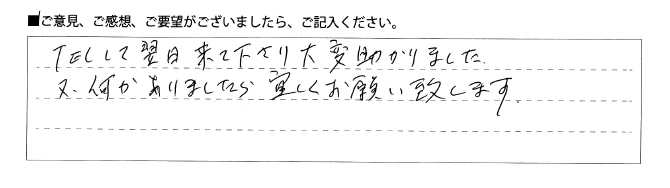 ■ご意見、ご感想、ご要望がございましたら、ご記入ください。
TELして翌日来て下さり大変助かりました.
又、何かありましたら宜しくお願い致します.